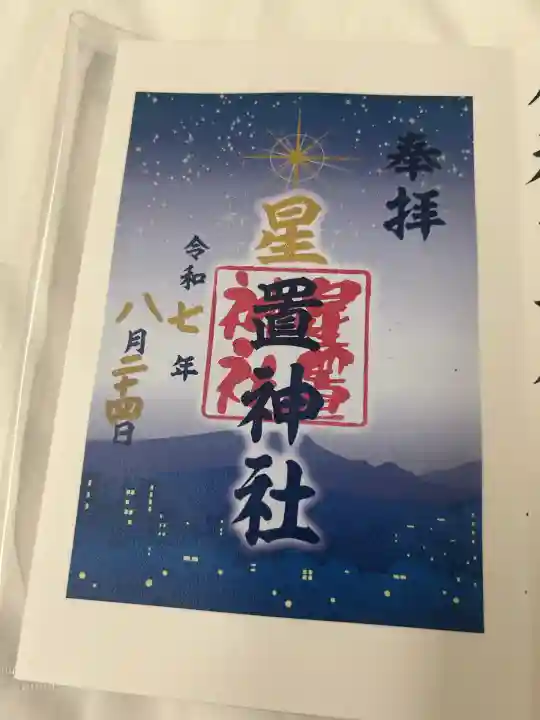 奉拝
星置神社
星置神社
令和七年
八月二十四日